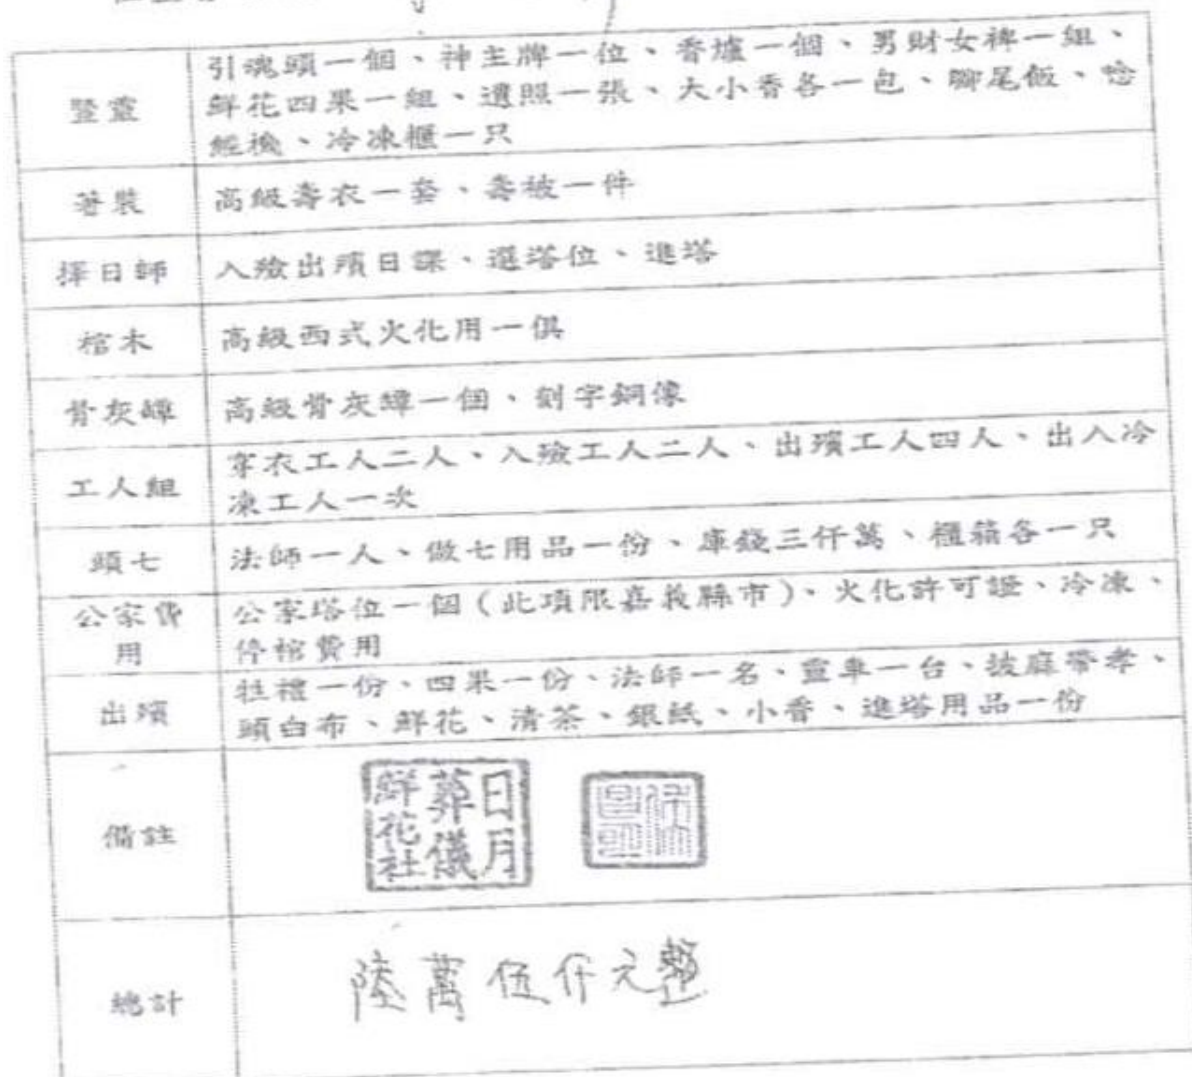 豎靈
引魂頭一個、神主牌一位、香爐一個、男財女裨一組、
鮮花四果一組、遺照一張、大小香各一包、腳尾飯、唸
經機、冷凍櫃一只
著裝
高級壽衣一套、壽被一件
擇日師
入殮出殯日課、選塔位、進塔
棺木
高級西式火化用一俱
骨灰罈
高級骨灰罈一個、刻字銅像
工人組
穿衣工人二人、入殮工人二人、出殯工人四人、出入冷
凍工人一次
頭七
法師一人、做七用品一份、庫錢三仟萬、櫃箱各一只
公家費
用
公家塔位一個(此項限嘉義縣市)、火化許可證、冷凍、
停棺費用
出殯
牲禮一份、四果一份、法師一名、靈車一台、披麻帶孝、
頭白布、鮮花、清茶、銀紙、小香、進塔用品一份
備註
日月
葬儀
鮮花社
總計
陸萬伍仟元整